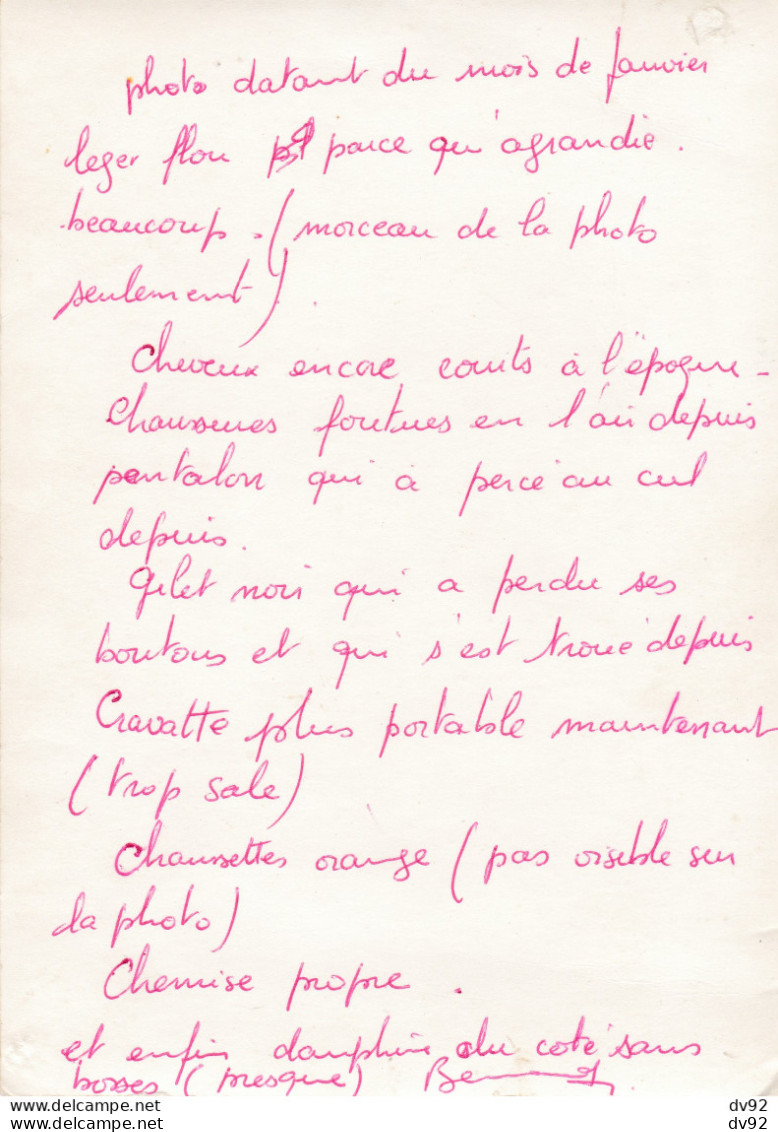 photo datant du mois de Janvier
leger flou parce qu'agrandie.
beaucoup. (morceau de la photo
seulement).
Cheveux encore courts à l'époque -
Chaussures foutues en l'air depuis
pantalon qui à percé au cul
depuis.
Gilet noir qui a perdu ses
boutons et qui s'est troué depuis
Cravatte plus portable maintenant
(trop sale)
Chaussettes orange (pas visible sur
la photo)
Chemise propre.
et enfin dauphine du coté sans
bosses (presque)
dv92
dv92